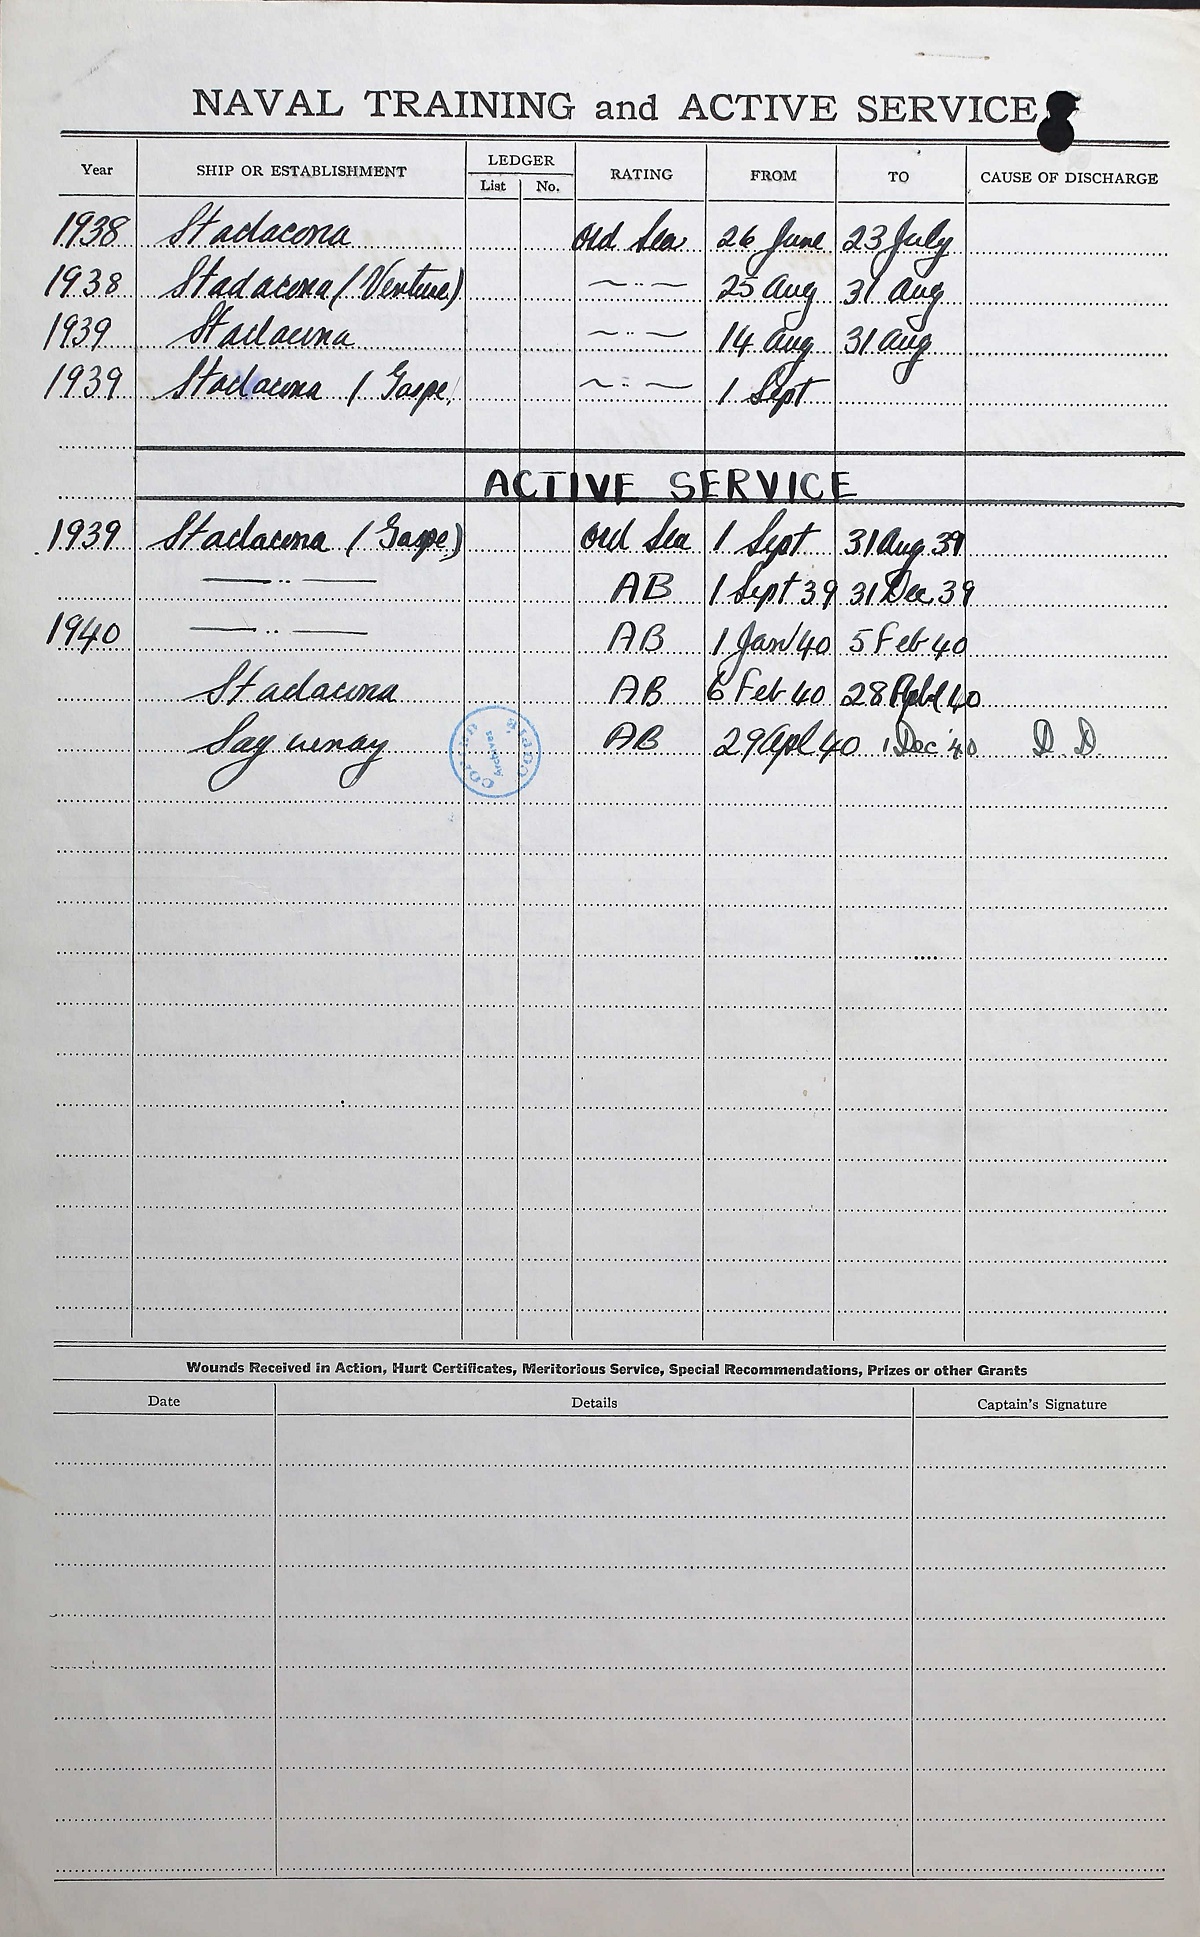 NAVAL TRAINING and ACTIVE SERVICE
Year SHIP OR ESTABLISHMENT LEDGER List No. RATING FROM TO CAUSE OF DISCHARGE
1938 Stadacona Ord Sea 26 June 23 July
1938 Stadacona (Venture) — ·· — 25 Aug 31 Aug
1939 Stadacona — ·· — 14 Aug 31 Aug
1939 Stadacona (Gaspe) — ·· — 1 Sept
ACTIVE SERVICE
1939 Stadacona (Gaspe) Ord Sea 1 Sept 31 Aug 39
— ·· — AB 1 Sept 39 31 Dec 39
1940 — ·· — AB 1 Jan 40 5 Feb 40
Stadacona AB 6 Feb 40 28 Apl 40
Saguenay AB 29 Apl 40 1 Dec 40 D.D.
Archives
Wounds Received in Action, Hurt Certificates, Meritorious Service, Special Recommendations, Prizes or other Grants
Date Details Captain's Signature